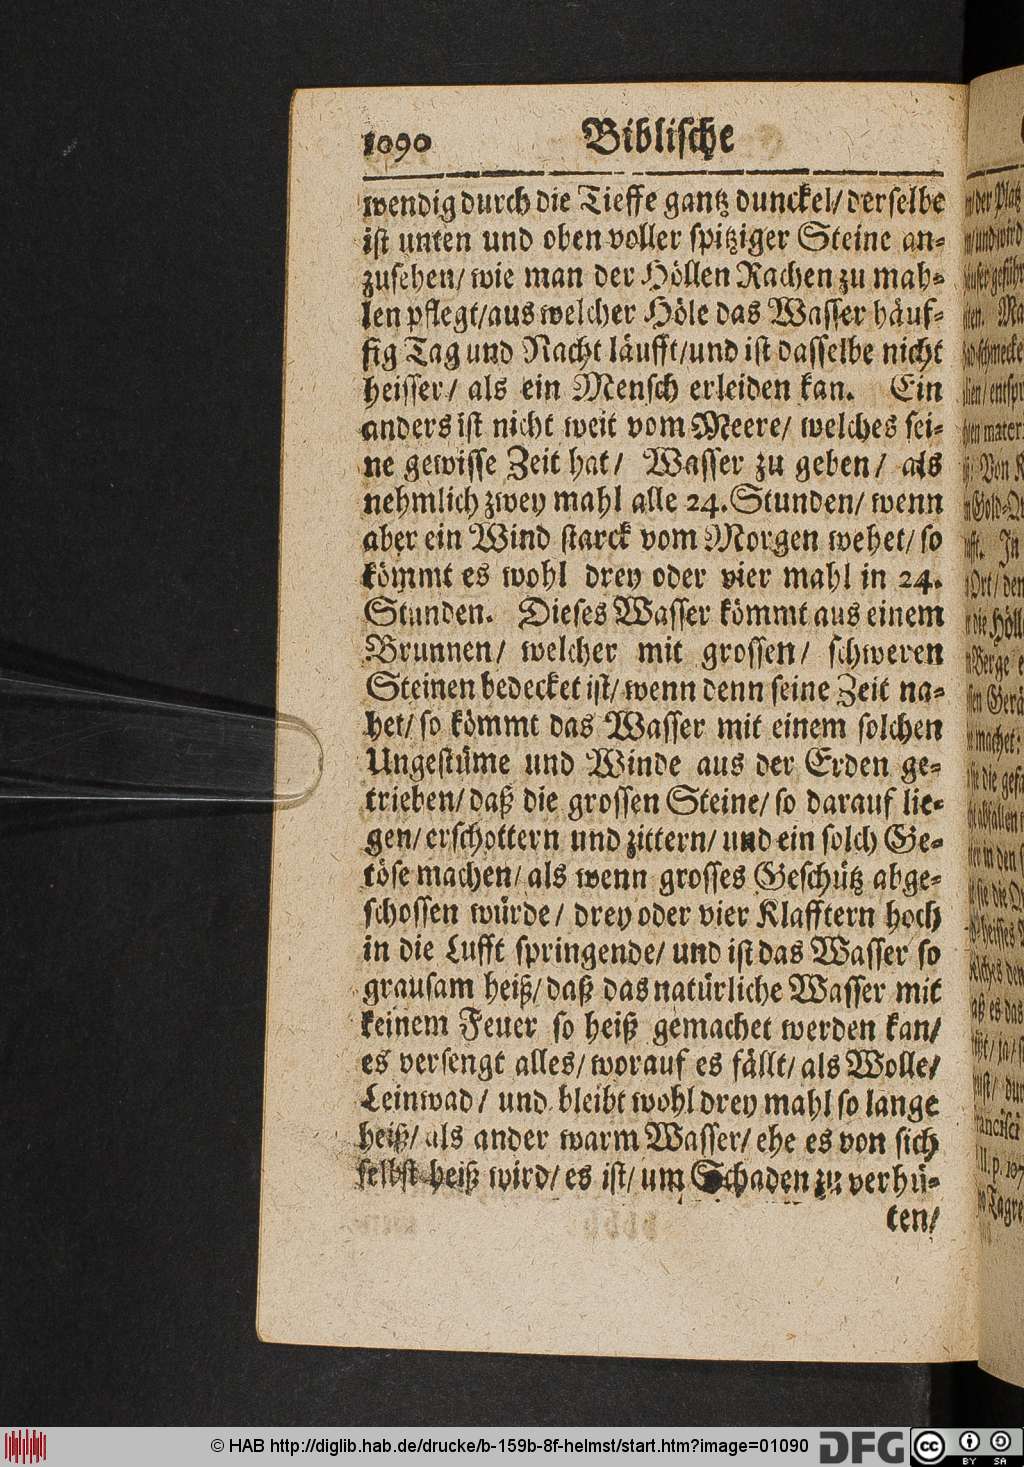 1090 Biblische
wendig durch die Tieffe gantz dunckel/ derselbe
ist unten und oben voller spitziger Steine an-
zusehen/ wie man der Höllen Rachen zu mah-
len pflegt/ aus welcher Höle das Wasser häuf-
fig Tag und Nacht läufft/ und ist dasselbe nicht
heisser/ als ein Mensch erleiden kan. Ein
anders ist nicht weit vom Meere/ welches sei-
ne gewisse Zeit hat/ Wasser zu geben/ als
nehmlich zwey mahl alle 24. Stunden/ wenn
aber ein Wind starck vom Morgen wehet/ so
kömmt es wohl drey oder vier mahl in 24.
Stunden. Dieses Wasser kömmt aus einem
Brunnen/ welcher mit grossen/ schweren
Steinen bedecket ist/ wenn denn seine Zeit na-
het/ so kömmt das Wasser mit einem solchen
Ungestüme und Winde aus der Erden ge-
trieben/ daß die grossen Steine/ so darauf lie-
gen/ erschottern und zittern/ und ein solch Ge-
töse machen/ als wenn grosses Geschütz abge-
schossen würde/ drey oder vier Klafftern hoch
in die Lufft springende/ und ist das Wasser so
grausam heiß/ daß das natürliche Wasser mit
keinem Feuer so heiß gemachet werden kan/
es versengt alles/ worauf es fällt/ als Wolle/
Leinwad/ und bleibt wohl drey mahl so lange
heiß/ als ander warm Wasser/ ehe es von sich
selbst heiß wird/ es ist/ um Schaden zu verhü-
ten/
© HAB http://diglib.hab.de/drucke/b-159b-8f-helmst/start.htm?image=01090 DFG cc BY SA